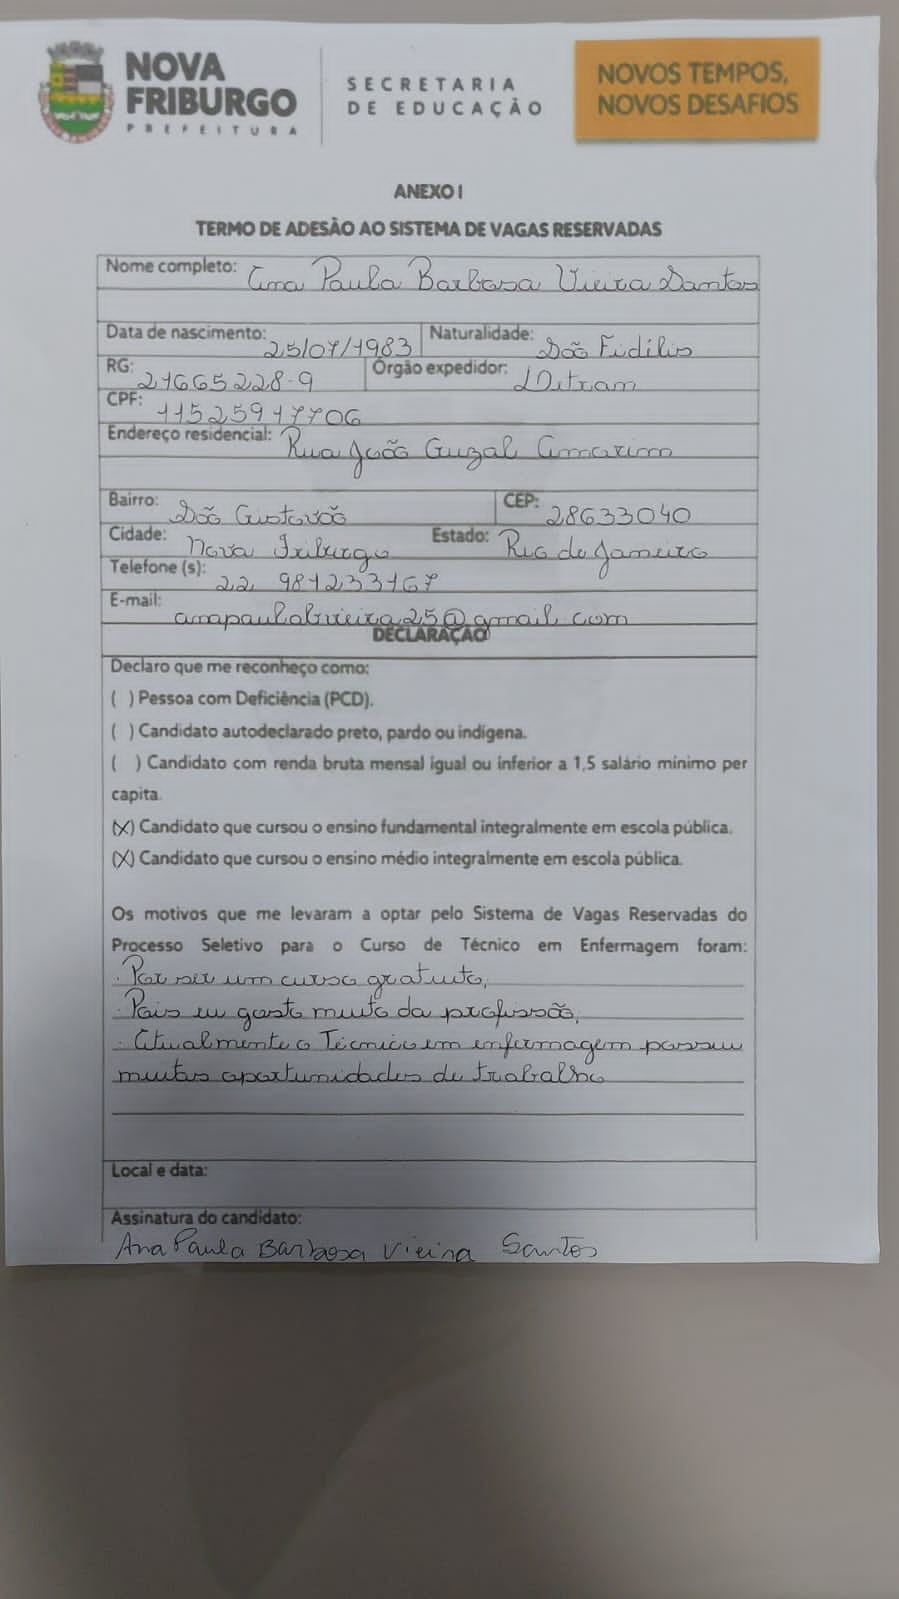 NOVA
FRIBURGO
PREFEITURA
SECRETARIA
DE EDUCAÇÃO
NOVOS TEMPOS,
NOVOS DESAFIOS
ANEXO I
TERMO DE ADESÃO AO SISTEMA DE VAGAS RESERVADAS
Nome completo: Ana Paula Barbosa Vieira Santos
Data de nascimento: 25/07/1983 Naturalidade: São Fidélis
RG: 21665228-9 Órgão expedidor: Detran
CPF: 11525917706
Endereço residencial: Rua João Guzal Amorim
Bairro: São Gustavoo CEP: 28633040
Cidade: Nova Friburgo Estado: Rio de Janeiro
Telefone (s): 22 981233167
E-mail: anapaulabvieira25@gmail.com
DECLARAÇÃO
Declaro que me reconheço como:
( ) Pessoa com Deficiência (PCD).
( ) Candidato autodeclarado preto, pardo ou indígena.
( ) Candidato com renda bruta mensal igual ou inferior a 1,5 salário mínimo per
capita.
(X) Candidato que cursou o ensino fundamental integralmente em escola pública.
(X) Candidato que cursou o ensino médio integralmente em escola pública.
Os motivos que me levaram a optar pelo Sistema de Vagas Reservadas do
Processo Seletivo para o Curso de Técnico em Enfermagem foram:
. Por ser um curso gratuito,
. Pois eu gosto muito da profissão,
. Atualmente o Técnico em enfermagem possui
muitas oportunidades de trabalho
Local e data:
Assinatura do candidato:
Ana Paula Barbosa Vieira Santos